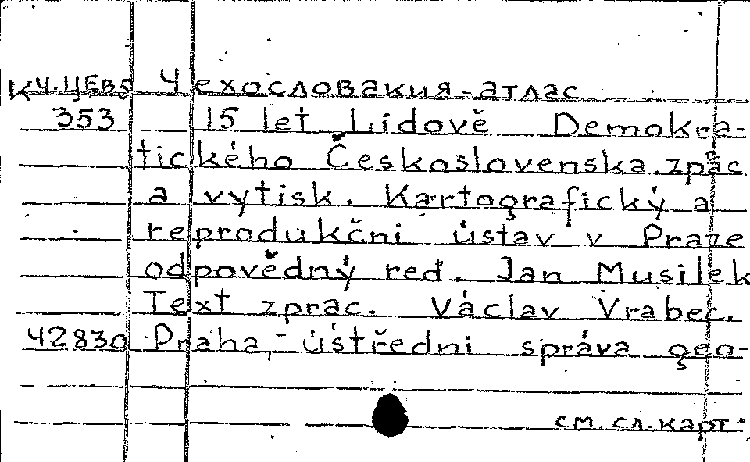 КЧ.ЦЕВ5 Чехословакия-атлас
353 15 let Lidově Demokra-
tického Československa. zprac.
a vytisk. Kartografický a
reprodukčni ústav v Praze
odpovědný red. Jan Musilek
Text zprac. Václav Vrabec.
42830 Praha, - ústředni správa geo-
см. сл. карт.